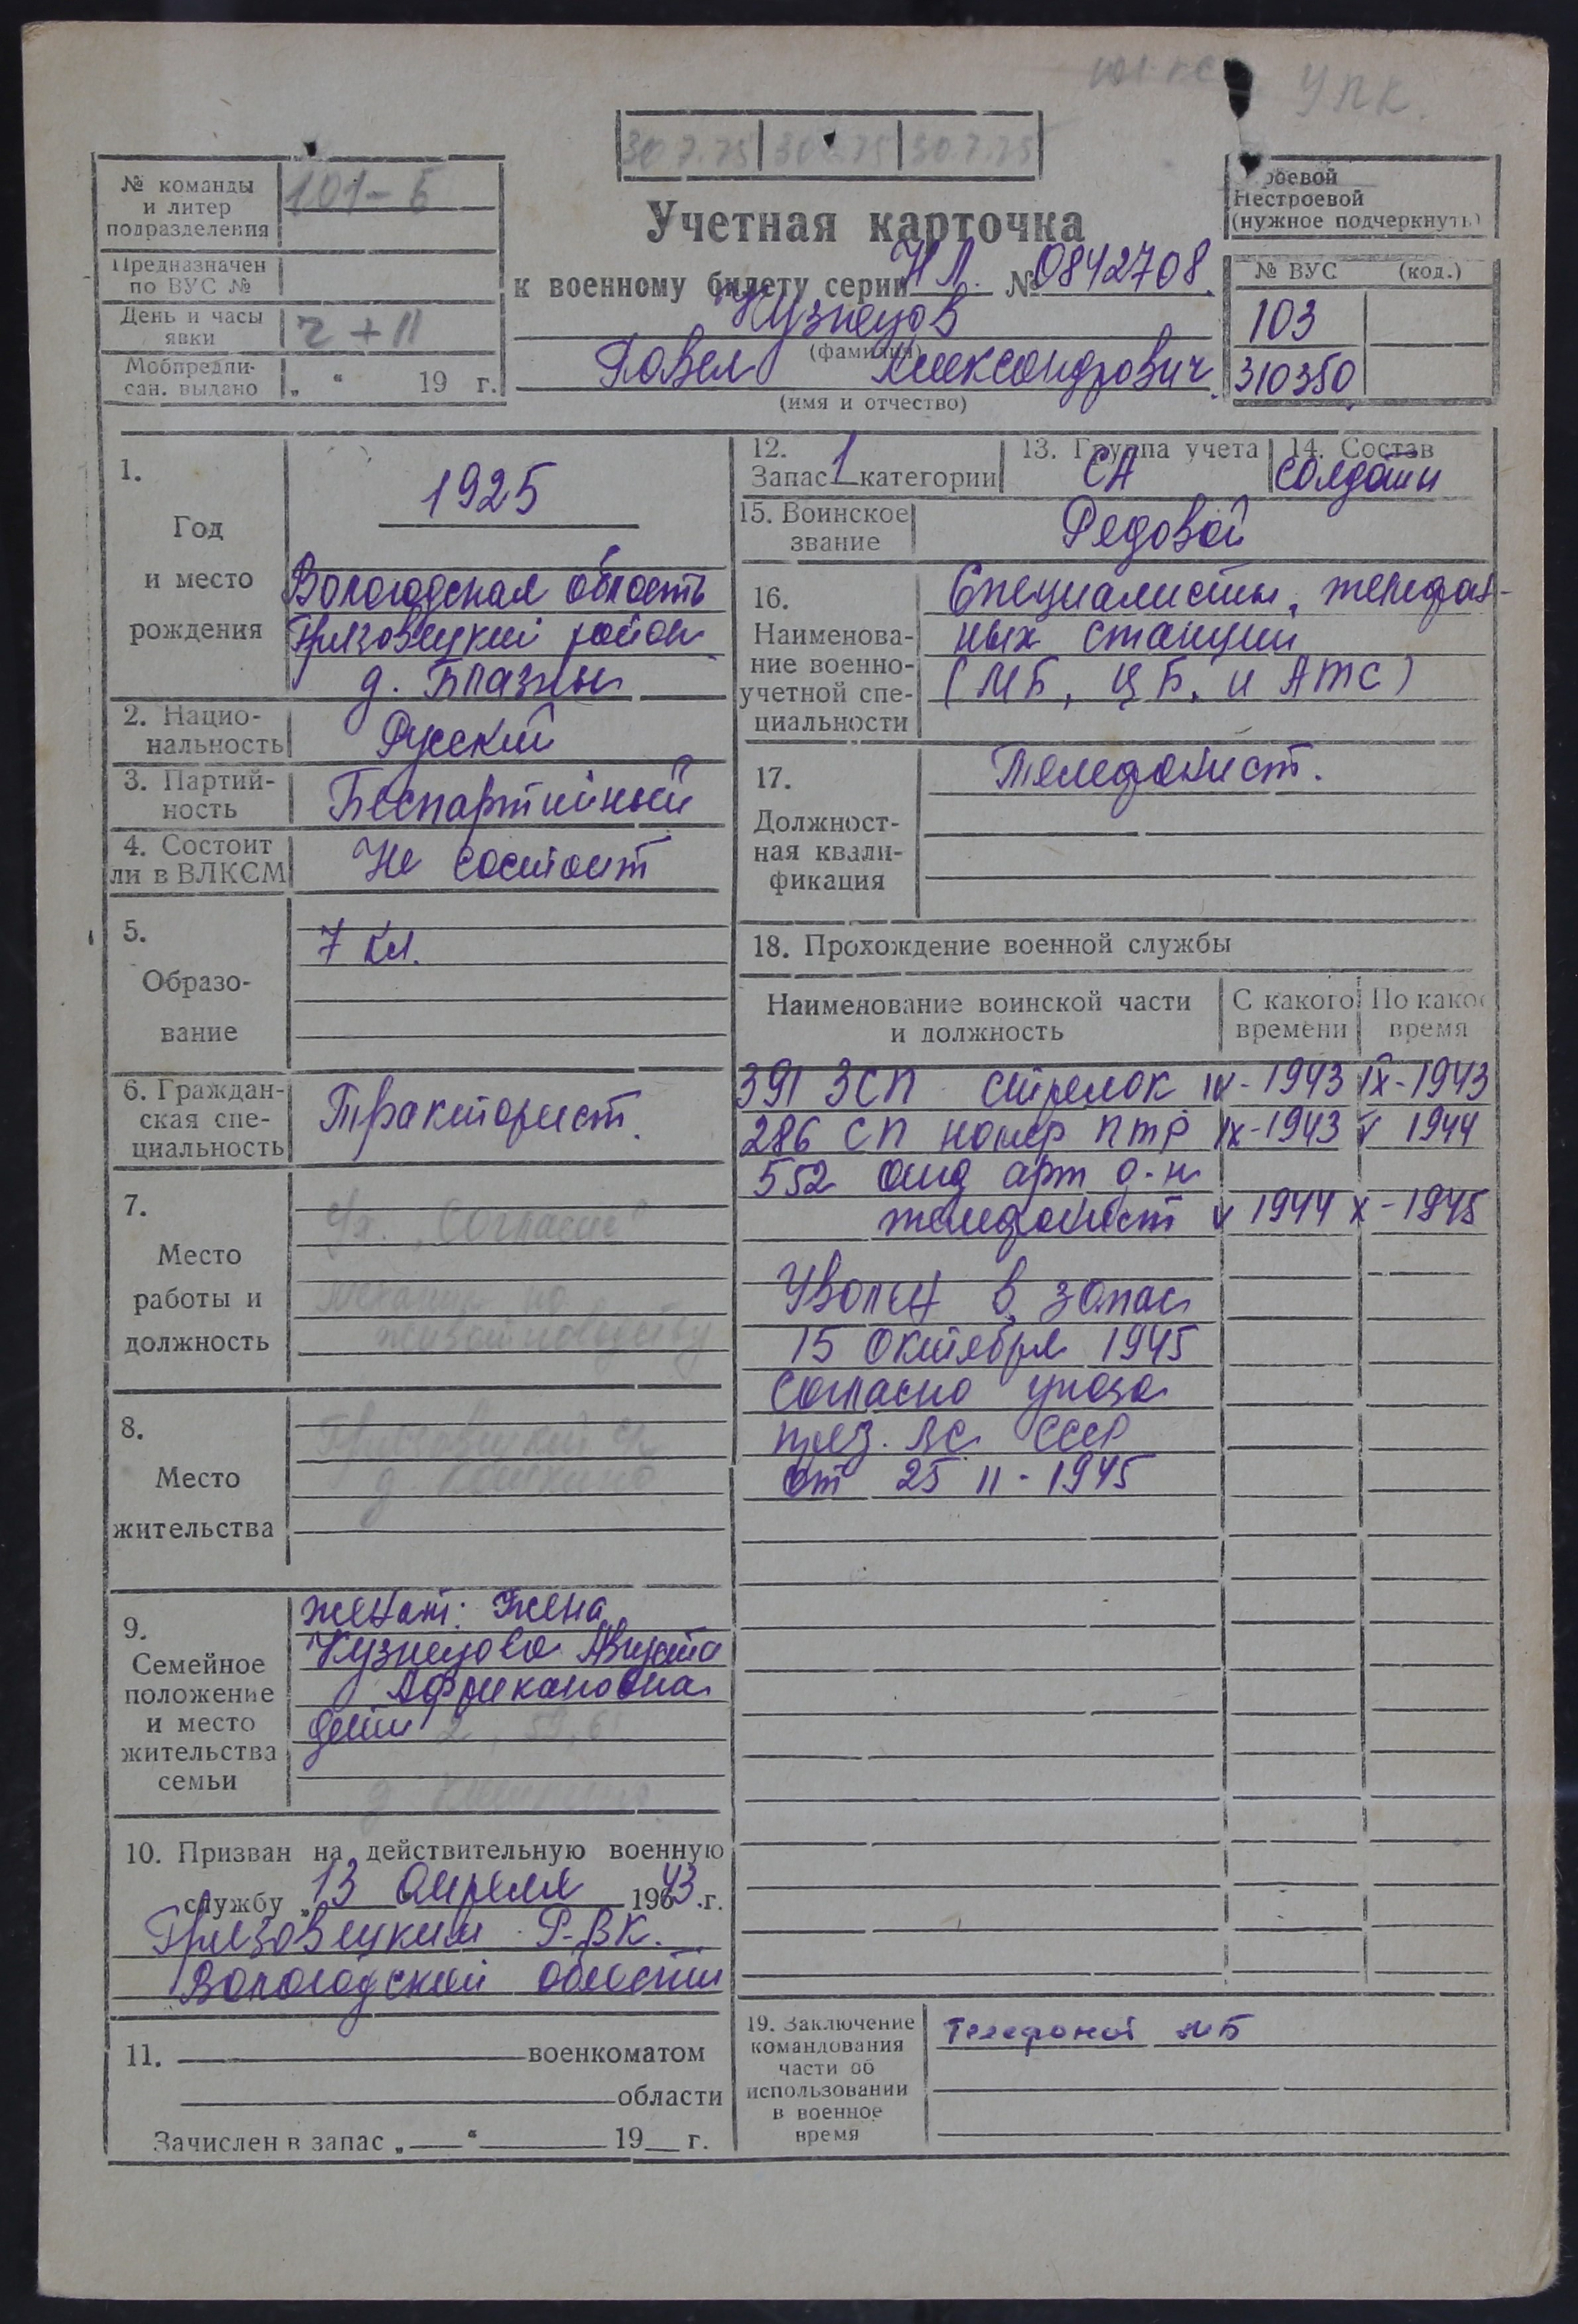 УПК.
30.7.75 30.7.75 30.7.75
№ команды и литер подразделения 101-Б
Предназначен по ВУС №
День и часы явки Ч+11
Мобпредписан. выдано „ “ 19 г.
Учетная карточка
к военному билету серии НЛ. № 0842708.
Кузнецов
(фамилия)
Павел Александрович.
(имя и отчество)
роевой
Нестроевой
(нужное подчеркнуть)
№ ВУС (код.)
103
310350
1.
Год
и место
рождения
1925
Вологодская область
Грязовецкий район
д. Блазны
2. Национальность Русский
3. Партийность Беспартийный
4. Состоит ли в ВЛКСМ Не состоит
5.
Образование
7 кл.
6. Гражданская специальность Тракторист.
7.
Место
работы и
должность
с/х. "Согласие"
механик по
животноводству
8.
Место
жительства
Грязовецкий
д.
9.
Семейное
положение
и место
жительства
семьи
женат: Жена
Кузнецова Августа
Африкановна
дети 2, 59, 6
д.
10. Призван на действительную военную
службу „13 апреля 1943 .г.
Грязовецким Р.ВК.
Вологодской области
11. военкоматом
области
Зачислен в запас „ “ 19 г.
12.
Запас 1 категории
13. Группа учета
СА
14. Состав
солдаты
15. Воинское звание Рядовой
16.
Наименование военно-учетной специальности
Специалисты, телефон-
ных станций
(МБ, ЦБ, и АТС)
17.
Должностная квалификация
Телефонист.
18. Прохождение военной службы
Наименование воинской части и должность С какого времени По како время
391 ЗСП стрелок IV-1943 IX-1943
286 СП номер ПТР IX-1943 V 1944
552 арт д-н
телефонист V 1944 X-1945
Уволен в запас
15 октября 1945
Согласно указа
през. ВС СССР
от 25 II-1945
19. Заключение
командования
части об
использовании
в военное
время
МБ